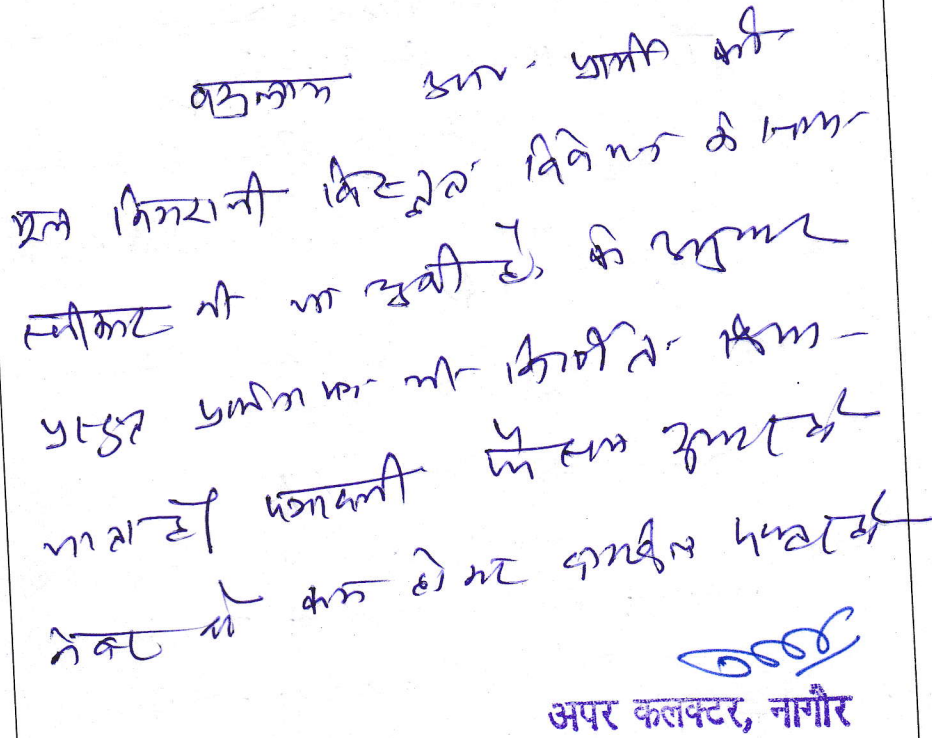 उभय प्रार्थी की
मूल निगरानी विस्तृत विवेचन के साथ
स्वीकार की जा चुकी है, के अनुसार
प्रस्तुत प्रार्थना पत्र भी निर्णीत किया
जाता है। पत्रावली फैसल शुमार हो
नंबर से कम होकर दाखिल दफ्तर हो
अपर कलक्टर, नागौर